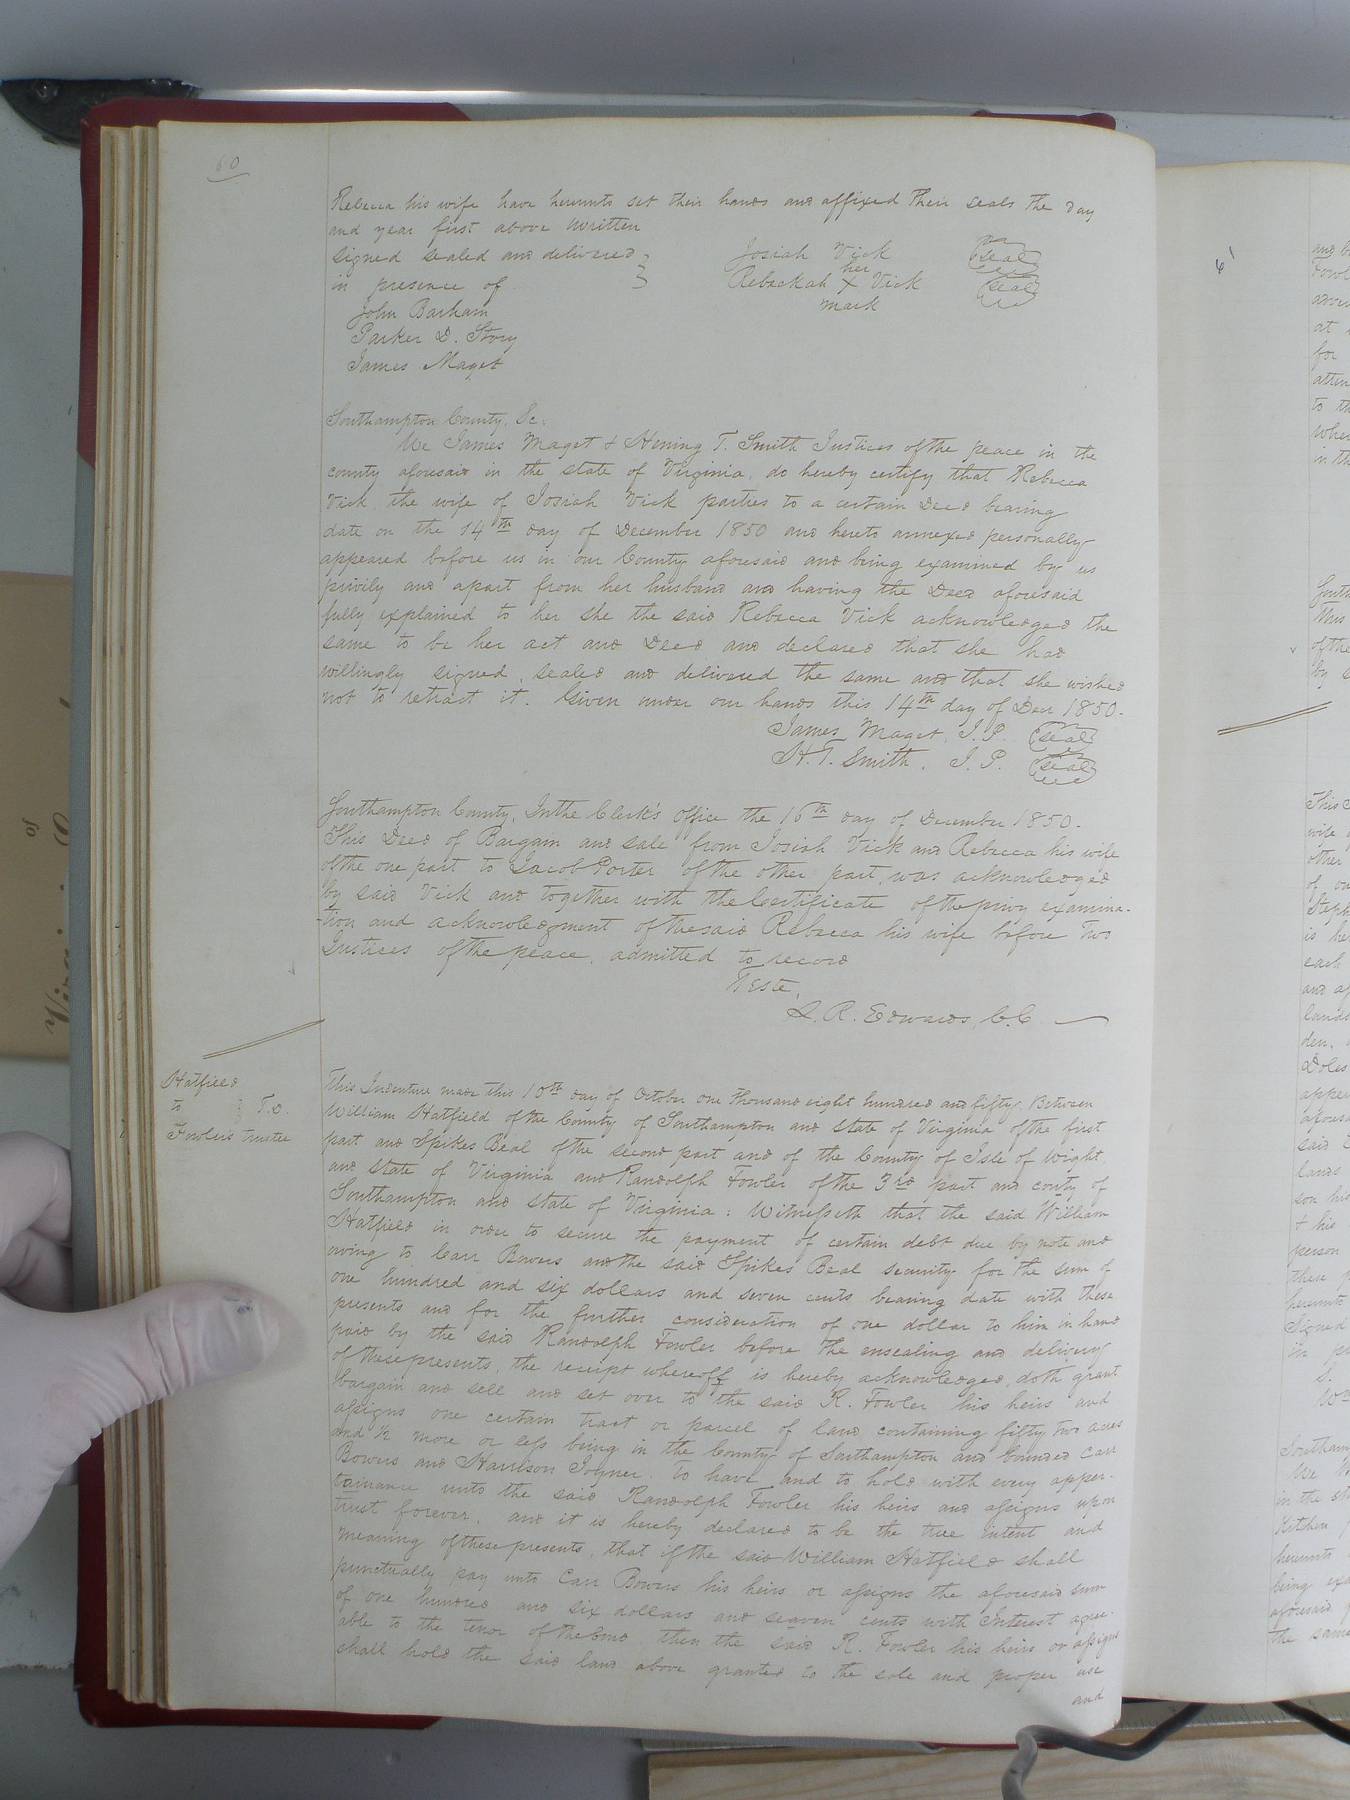 60
Rebecca his wife have hereunto set their hands and affixed their seals the day
and year first above written
signed sealed and delivered } Josiah Vick (seal)
in presence of her
Rebeckah X Vick (seal)
John Barham mark
Parker D. Story
James Maget
Southampton County, Sc.
We James Maget & Hening T. Smith Justices of the peace in the
county aforesaid in the state of Virginia, do hereby certify that Rebecca
Vick the wife of Josiah Vick parties to a certain Deed bearing
date on the 14th day of December 1850 and hereto annexed personally
appeared before us in our County aforesaid and being examined by us
privily and apart from her husband and having the Deed aforesaid
fully explained to her she the said Rebecca Vick acknowledged the
same to be her act and Deed and declared that she had
willingly signed, sealed and delivered the same and that she wished
not to retract it. Given under our hands this 14th day of Decr 1850.
James Maget, J.P. (seal)
H. T. Smith, J.P. (seal)
Southampton County, In the Clerk's office the 16th day of December 1850.
This Deed of Bargain and sale from Josiah Vick and Rebecca his wife
of the one part to Jacob Porter of the other part, was acknowledged
by said Vick and together with the Certificate of the privy examina-
-tion and acknowledgment of the said Rebecca his wife before two
Justices of the peace, admitted to record
Teste,
L. R. Edwards, C.C.
Hatfield
to } T.D.
Fowler's trustee
This Indenture made this 10th day of October one thousand eight hundred and fifty Between
William Hatfield of the County of Southampton and state of Virginia of the first
part and Spikes Beal of the second part and of the County of Isle of Wight
and State of Virginia and Randolph Fowler of the 3rd part and county of
Southampton and state of Virginia: Witnesseth that the said William
Hatfield in order to secure the payment of certain debt due by note and
owing to Carr Bowers and the said Spikes Beal security for the sum of
one hundred and six dollars and seven cents bearing date with these
presents and for the further consideration of one dollar to him in hand
paid by the said Randolph Fowler before the ensealing and delivery
of these presents, the receipt whereoff is hereby acknowledged, doth grant
bargain and sell and set over to the said R. Fowler his heirs and
assigns one certain tract or parcel of land containing fifty two acres
and ½ more or less being in the County of Southampton and bounded Carr
Bowers and Harrison Joyner. To have and to hold with every apper-
tainance unto the said Randolph Fowler his heirs and assigns upon
trust forever, and it is hereby declared to be the true intent and
meaning of these presents, that if the said William Hatfield shall
punctually pay unto Carr Bowers his heirs or assigns the aforesaid sum
of one hundred and six dollars and seaven cents with Interest agree-
able to the tenor of the bond then the said R. Fowler his heirs or assigns
shall hold the said land above granted to the sole and proper use
and
61
at
for
to th
in th
of the
This
wife
other
each
lands
den,
Doles
said
lands
son his
& his
person
hereunto
Signed
in
S.
We
in the st
hereunto
aforesaid
the same